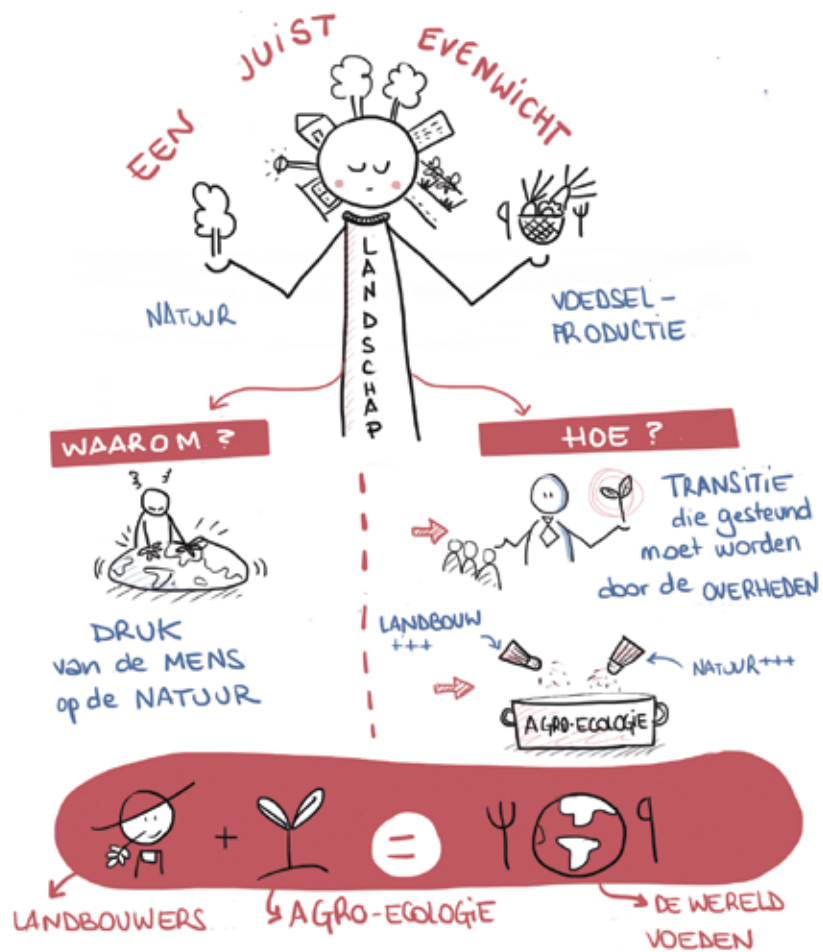 EEN JUIST EVENWICHT
NATUUR
VOEDSEL-
PRODUCTIE
LANDSCHAP
WAAROM?
HOE?
DRUK
van de MENS
op de NATUUR
TRANSITIE
die gesteund
moet worden
door de OVERHEDEN
LANDBOUW
+++
NATUUR+++
AGRO-ECOLOGIE
+
=
LANDBOUWERS
AGRO-ECOLOGIE
DE WERELD
VOEDEN